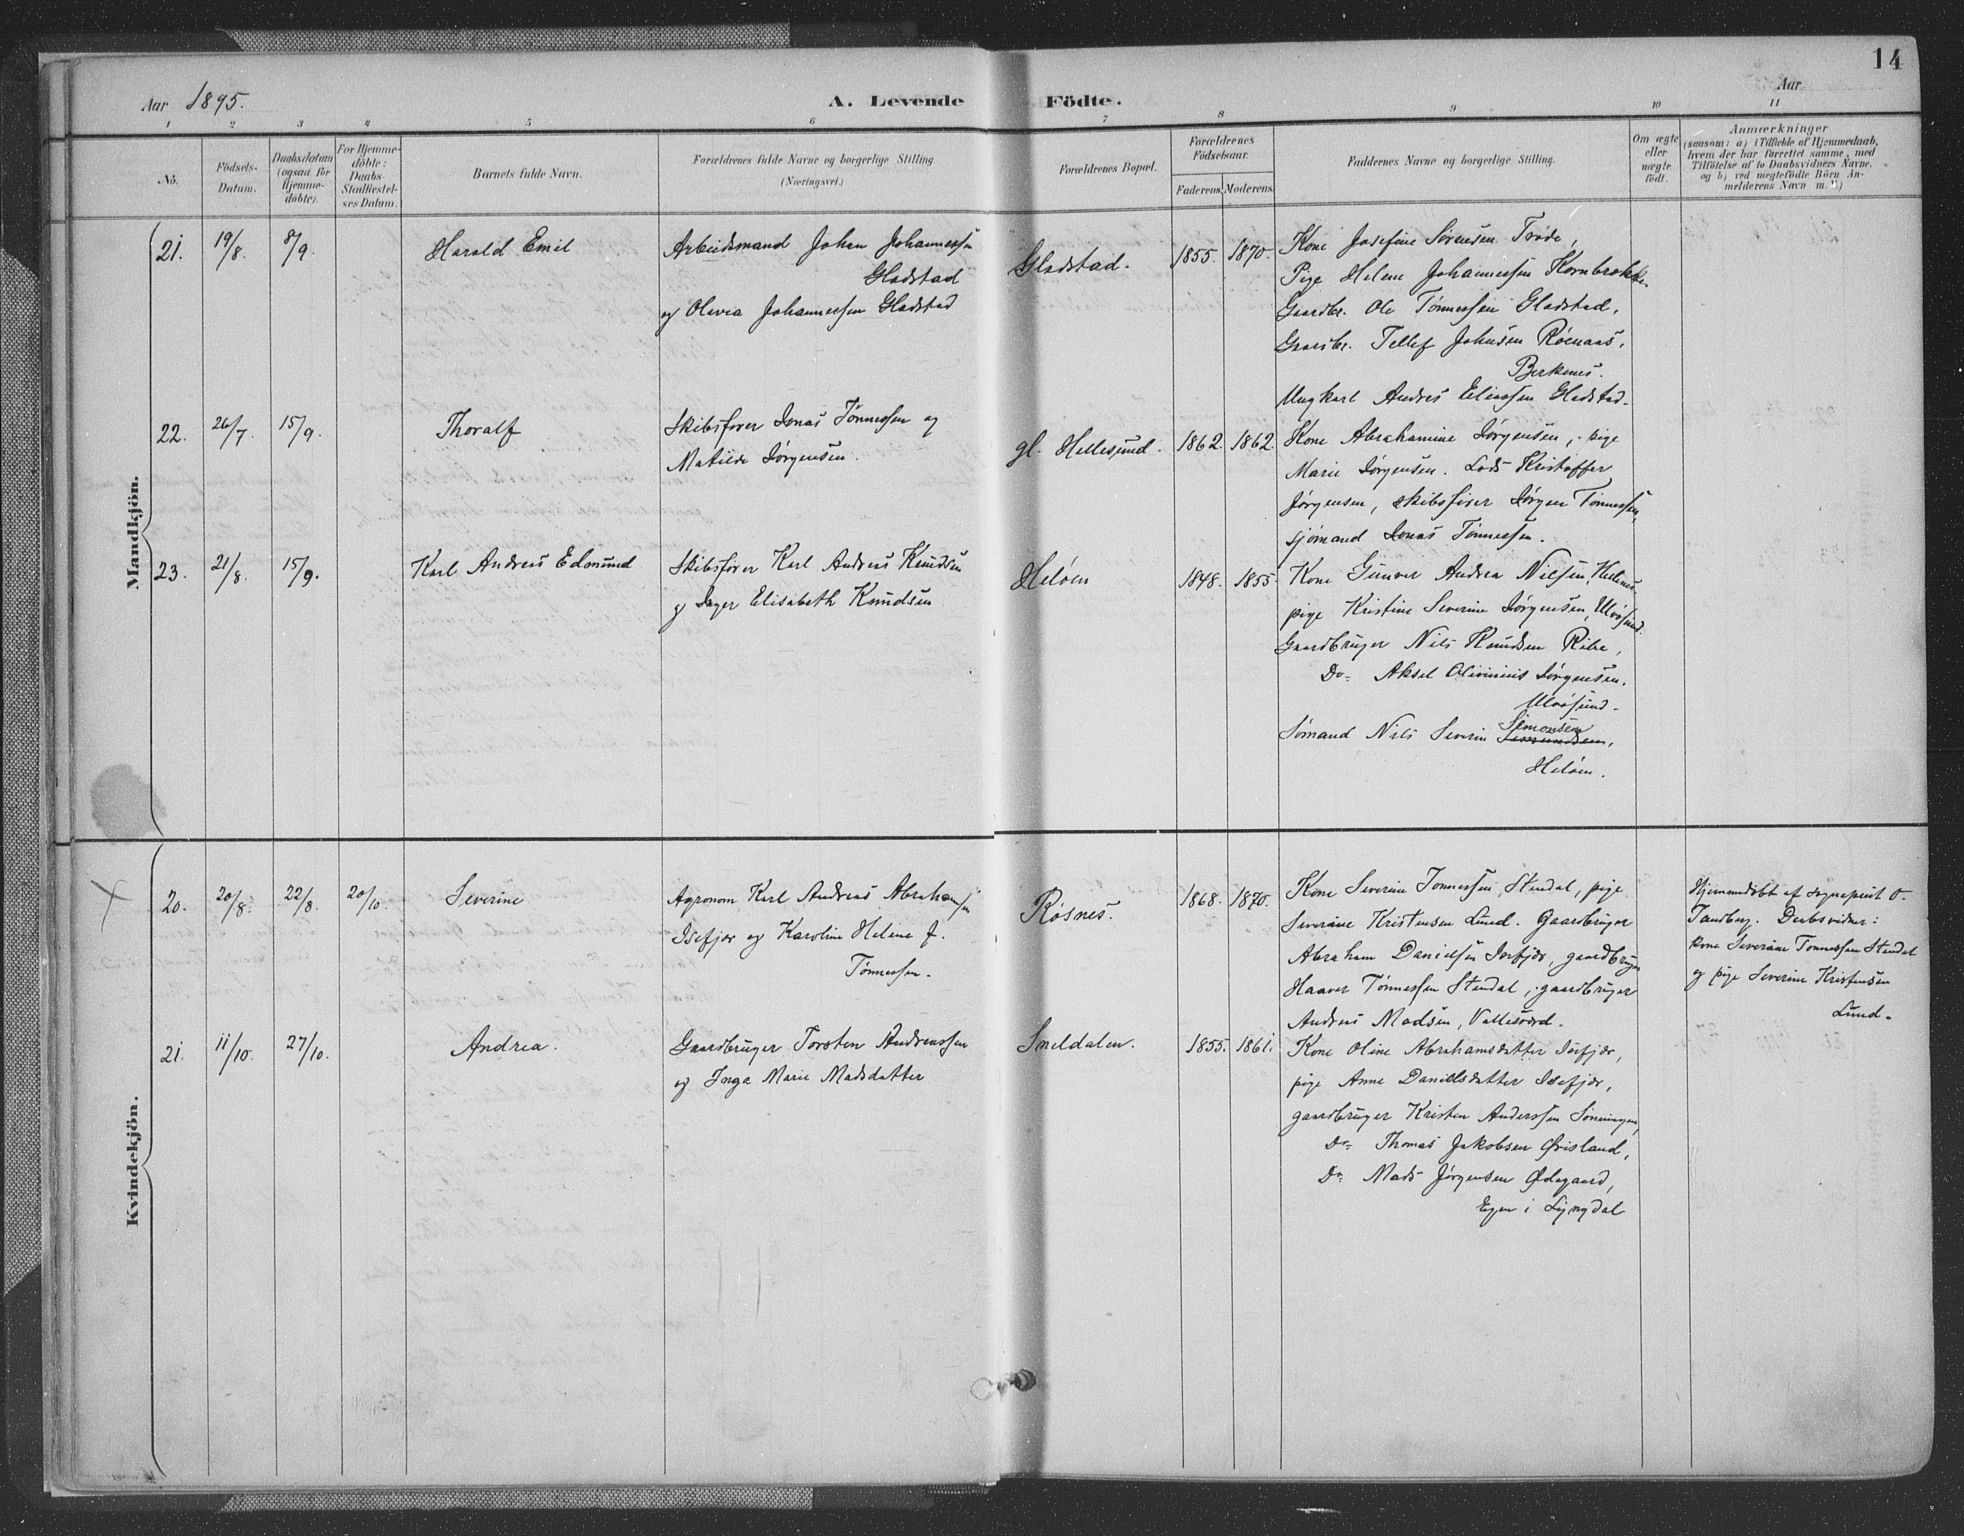 14
Aar 1895.
A. Levende Födte.
Aar
1 2 3 4 5 6 7 8 9 10 11
No.
Födsels-
Datum.
Daabsdatum
(ogsaa for
Hjemme-
döbte).
For Hjemme-
döbte:
Daabs-
Stadfæstel-
ses Datum.
Barnets fulde Navn.
Forældrenes fulde Navne og borgerlige Stilling.
(Næringsvei.)
Forældrenes Bopæl.
Forældrenes
Födselsaar.
Faderens. Moderens.
Faddernes Navne og borgerlige Stilling.
Om ægte
eller
uægte
födt.
Anmærkninger
(saasom: a) i Tilfælde af Hjemmedaab,
hvem der har forrettet samme, med
Tilföielse af to Daabsvidners Navne,
og b) ved uægtefödte Börn An-
melderens Navn m. v.)
Mandkjön.
21. 19/8. 8/9. Harald Emil
Arbeidsmand Johan Johannessen
Gladstad
og Olevia Johannessen Gladstad
Gladstad. 1855. 1870.
Kone Josefine Sørensen Trøde,
Pige Helene Johannessen Kornbrekke.
Gaardbr. Ole Tønnessen Gladstad,
Gaardbr. Tellef Johnsen Røenaas,
Berkenes.
Ungkarl Andres Eliassen Gladstad.
22. 26/7. 15/9. Thoralf
Skibsfører Jonas Tønnessen og
Matilde Jørgensen.
gl. Hellesund. 1862. 1862.
Kone Abrahamine Jørgensen, pige
Marie Jørgensen. Lods Kristoffer
Jørgensen, skibsfører Jørgen Tønnessen,
sjømand Jonas Tønnessen.
23. 21/8. 15/9. Karl Andreas Edmund
Skibsfører Karl Andreas Knudsen
og Inger Elisabeth Knudsen
Heløen 1848. 1855.
Kone Gunver Andrea Nielsen,
pige Kristine Severine Jørgensen, Ulvøsund.
Gaardbruger Nils Knudsen Ribe,
Do- Aksel Oliminius Jørgensen.
Ulvøsund.
Sømand Nils Severin Simonsen
Heløen.
Kvindekjön.
20. 20/8. 22/8. 20/10. Severine
Agronom Karl Andreas Abrahamsen
Isefjær og Karoline Helene f.
Tønnessen.
Røsnes. 1868. 1870.
Kone Severine Tønnessen, Stendal, pige
Severine Kristensen Lund. Gaardbruger
Abraham Danielsen Isefjær, gaardbruger
Haaver Tønnessen Stendal, gaardbruger
Andreas Madsen, Vallesværd.
Hjemmedøbt af sogneprest O.
Tandberg. Daabsvidner:
kone Severine Tønnessen Stendal
og pige Severine Kristensen
Lund.
21. 11/10. 27/10. Andrea.
Gaardbruger Torsten Andreassen
og Inga Marie Madsdatter
Smeldalen. 1855. 1861.
Kone Oline Abrahamsdatter Isefjær,
pige Anne Danielsdatter Isefjær,
gaardbruger Kristen Anderssen Sønningen,
Do- Thomas Jakobsen Øvisland,
Do- Mads Jørgensen Ødegaard,
i Lyngdal